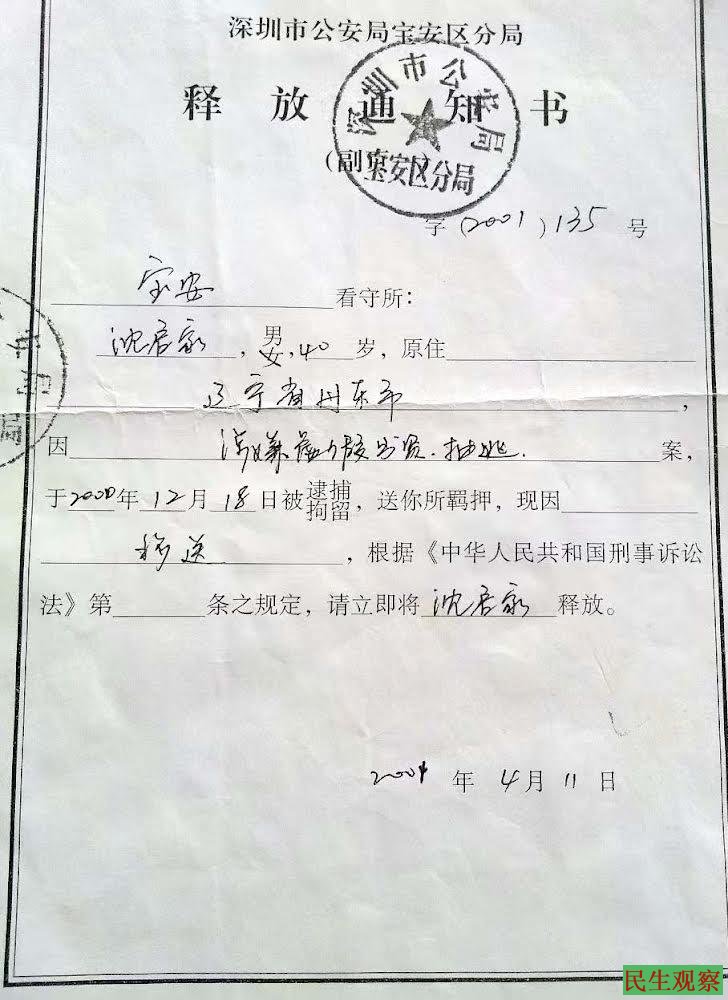 深圳市公安局宝安区分局
释放通知书
(副本)
深圳市公安局
宝安区分局
字(2001)135号
宝安看守所:
沈启家,男女,40岁,原住
辽宁省丹东市,
因涉嫌虚假出资.抽逃.案,
于2000年12月18日被逮捕拘留,送你所羁押,现因
移送,根据《中华人民共和国刑事诉讼
法》第 条之规定,请立即将沈启家释放。
2001年4月11日
民生观察